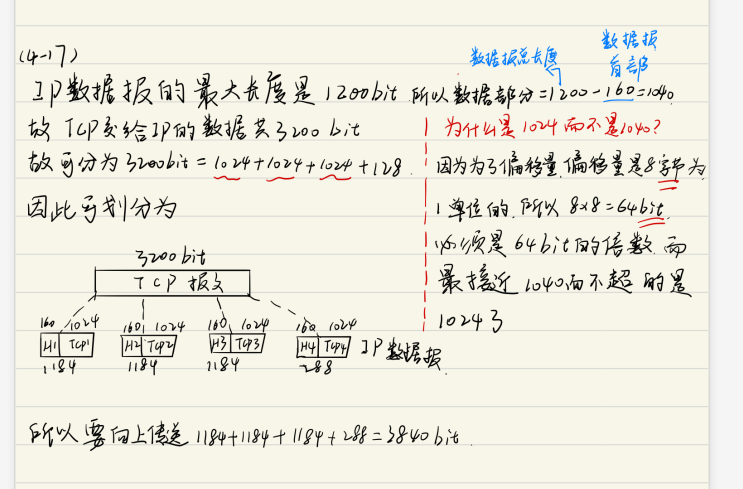 (4-17)
数据报总长度
数据报
首部
IP数据报的最大长度是1200bit 所以数据部分=1200-160=1040.
故TCP交给IP的数据共3200bit
故可分为3200bit=1024+1024+1024+128
因此可划分为
为什么是1024而不是1040?
因为为了偏移量,偏移量是8字节为
1单位的,所以8×8=64bit
必须是64bit的倍数,而
最接近1040而不超的是
1024了
3200bit
TCP报文
160 1024 160 1024 160 1024 160 1024
H1 TCP1 H2 TCP2 H3 TCP3 H4 TCP4 IP数据报
1184 1184 1184 288
所以要向上传送1184+1184+1184+288=3840bit.